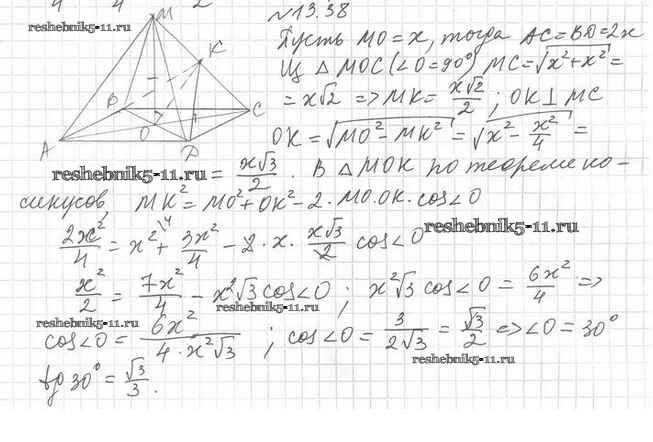 4 4 2
№13.38
reshebnik5-11.ru
Пусть MO = x, тогда AC = BD = 2x
Из △MOC (∠O = 90°) MC = √(x² + x²) =
= x√2 => MK = x√2/2 ; OK ⊥ MC
OK = √(MO² - MK²) = √(x² - x²/4) =
M K B C O A D
reshebnik5-11.ru = x√3/2 . В △MOK по теореме ко-
синусов, MK² = MO² + OK² - 2 · MO · OK · cos∠O
reshebnik5-11.ru
2x²/4 = x² \4 + 3x²/4 - 2 · x · x√3/2 cos∠O
x²/2 = 7x²/4 - x²√3 cos∠O ; x²√3 cos∠O = 6x²/4 =>
reshebnik5-11.ru
reshebnik5-11.ru
cos∠O = 6x²/(4 · x²√3) ; cos∠O = 3/(2√3) = √3/2 => ∠O = 30°
reshebnik5-11.ru
tg 30° = √3/3 .